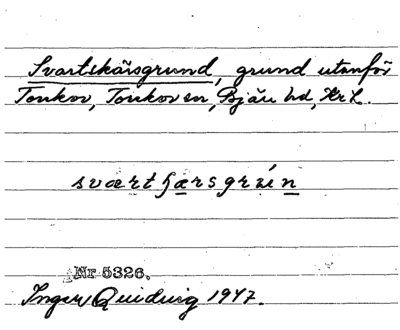 Svartskärsgrund, grund utanför
Torikov, Torikov sn, Bjäre hd, Kr L.
svært ʃærsgrɯ́n
Nr 5326.
Inger Quidwig 1947.